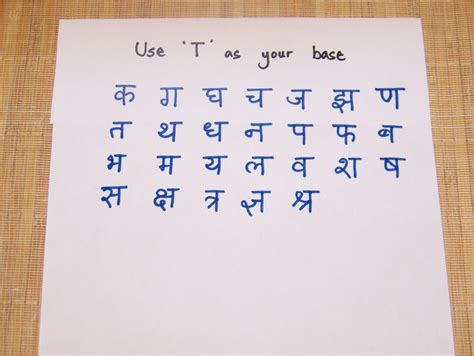 Use 'T' as your base
क ग घ च ज झ ण
त थ ध न प फ ब
भ म य ल व श ष
स क्ष त्र ज्ञ श्र